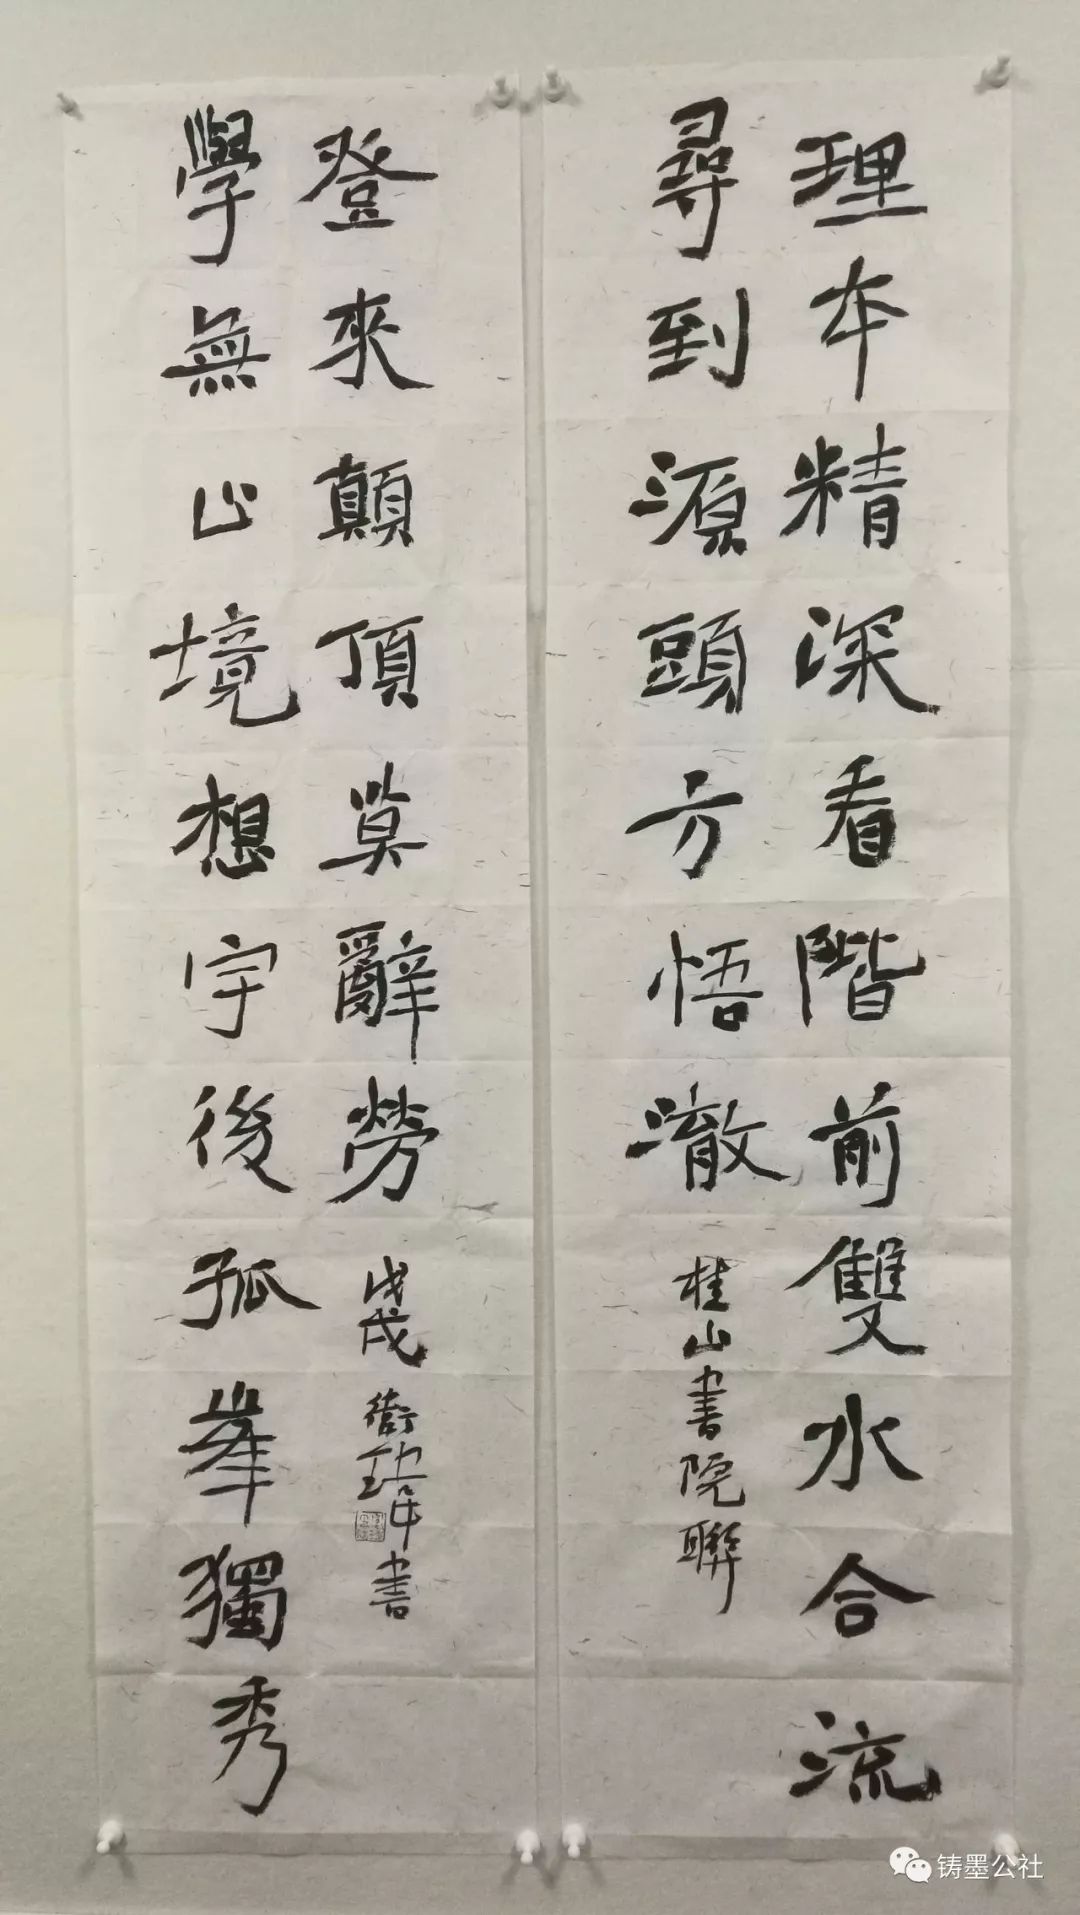 理本精深看階前雙水合流
尋到源頭方悟澈
桂山書院聯
學無止境想宇後孤峯獨秀
登來顛頂莫辭勞
戊戌
書
铸墨公社